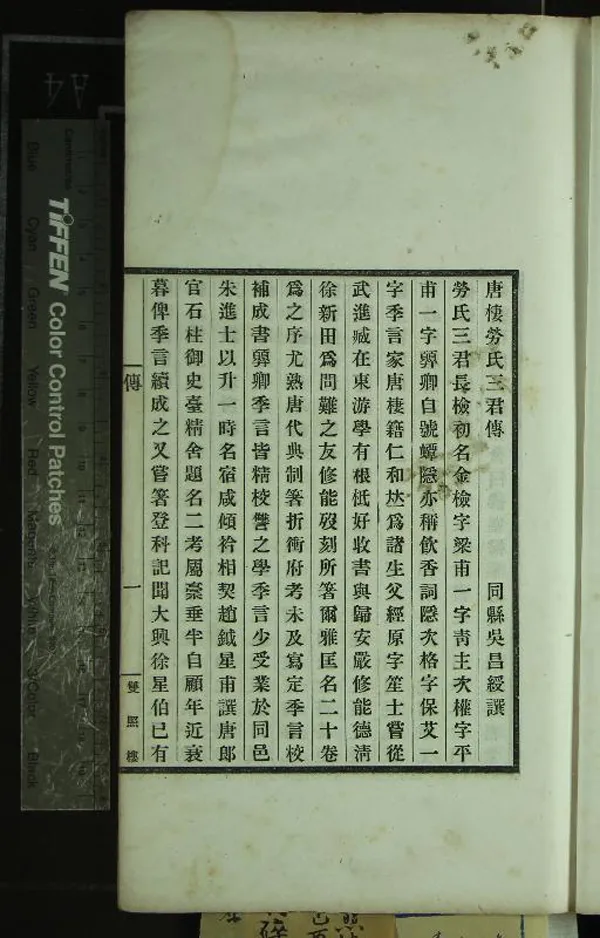 唐棲勞氏三君傳 同縣吳昌綬譔
勞氏三君長檢初名金檢字梁甫一字靑主次權字平
甫一字巽卿自號蟫隱亦稱飮香詞隱次格字保艾一
字季言家唐棲籍仁和𠀤爲諸生父經原字笙士嘗從
武進臧在東游學有根柢好收書與歸安嚴修能德淸
徐新田爲問難之友修能歿刻所箸爾雅匡名二十卷
爲之序尤熟唐代典制箸折衝府考未及寫定季言校
補成書巽卿季言皆精校讐之學季言少受業於同邑
朱進士以升一時名宿咸傾衿相契趙鉞星甫譔唐郞
官石柱御史臺精舍題名二考屬稾垂半自顧年近衰
暮俾季言續成之又嘗箸登科記聞大興徐星伯已有
傳
一
雙照樓
TIFFEN Color Control Patches
Blue Cyan Green Yellow Red Magenta White 3/Color Black
A4